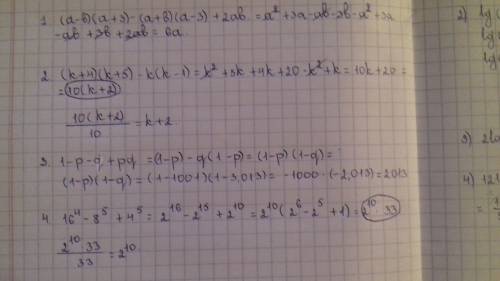 1. (a-b)(a+3)-(a+b)(a-3)+2ab = a²+3a-ab-3b-a²+3a
-ab+3b+2ab = 6a. 2)
lg
lg
2. (k+4)(k+5)-k(k-1) = k²+5k+4k+20-k²+k = 10k+20 =
= 10(k+2)
10(k+2)/10 = k+2
3. 1-p-q+pq = (1-p)-q(1-p) = (1-p)(1-q) =
(1-p)(1-q) = (1-1001)(1-3,013) = -1000·(-2,013) = 2013
4. 16⁴-8⁵+4⁵ = 2¹⁶-2¹⁵+2¹⁰ = 2¹⁰(2⁶-2⁵+1) = 2¹⁰·33
2¹⁰·33/33 = 2¹⁰
3)
4) 121
=